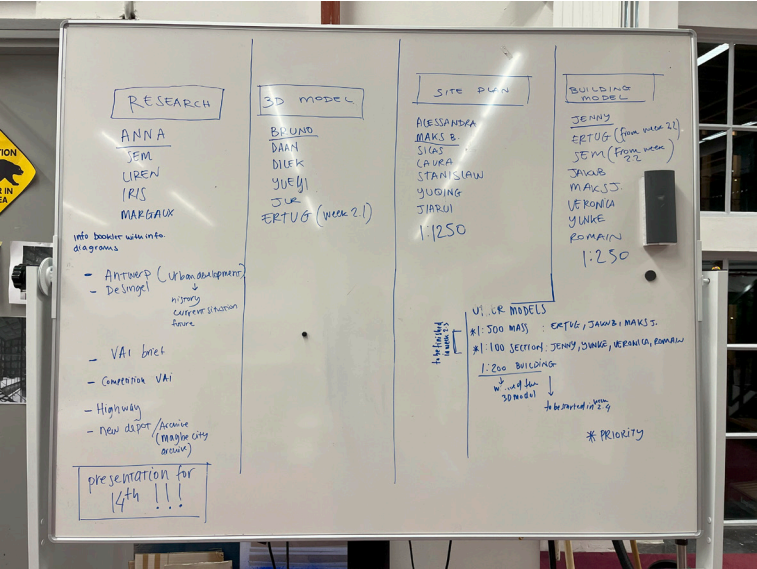 RESEARCH
ANNA
SEM
LIREN
IRIS
MARGAUX
Info booklet with info.
diagrams
- Antwerp (urban development)
↓
history
current situation
future
- Desingel
- VAi brief
- Competition VAi
- Highway
- new depot /Archive
(maybe city
archive)
presentation for
14th !!!
3D MODEL
BRUNO
DAAN
DILEK
JLR
ERTUG (week 2.1)
SITE PLAN
ALESSANDRA
MAKS B.
SILAS
LAURA
STANISLAW
YUQING
JIARUI
1:1250
BUILDING
MODEL
JENNY
ERTUG (from week 2.2)
SEM (from week
2.2
JAKUB
MAKS J.
VERONICA
YUNKE
ROMAIN
1:250
MODELS
to be finished
in week 2.3
*1:500 MASS : ERTUG, JAKUB, MAKS J.
*1:100 SECTION: JENNY, YUNKE, VERONICA, ROMAIN
1:200 BUILDING
the
3D model
to be started in week
2.4
* PRIORITY
TION
R IN
EA